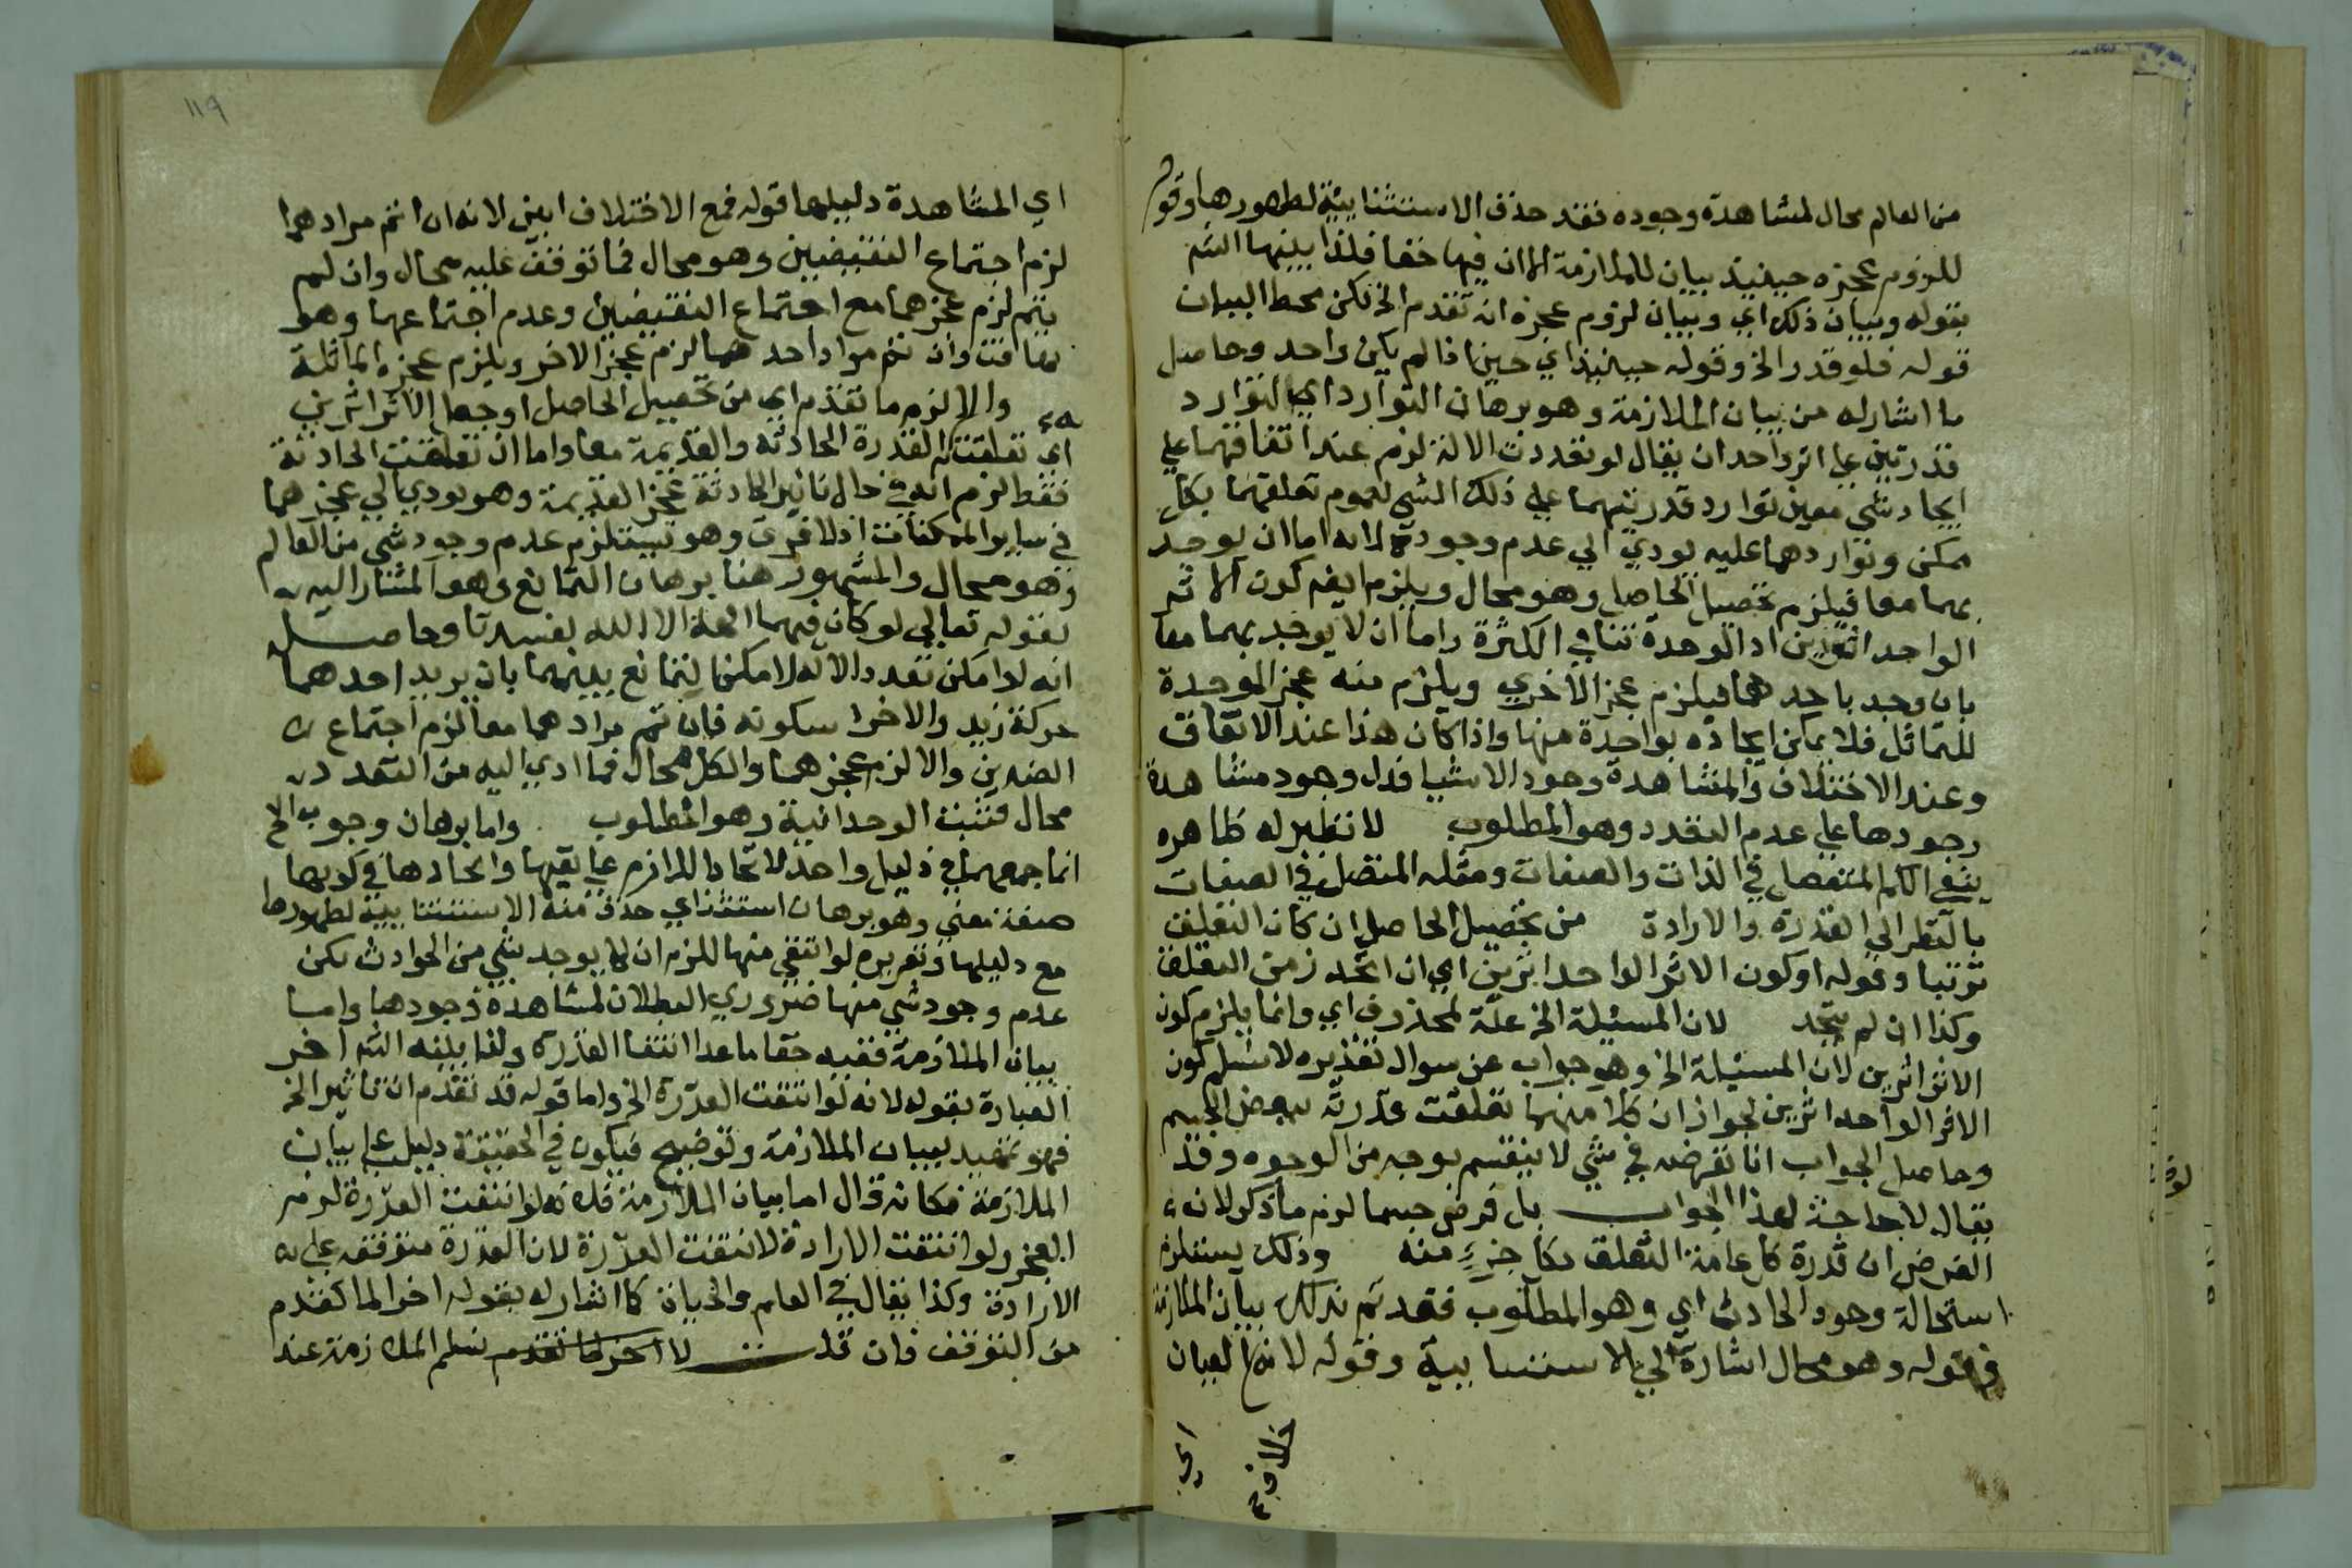 من العالم محال لمشاهدة وجوده فقد حذف الاستثنائية لظهورها وقوله
للزوم عجزه حينئذ بيان للملازمة الا ان فيها خفا فلذا بينها الش
بقوله وبيان ذلك اي وبيان لزوم عجزه انه تقدم الخ لكن محط البيان
قوله فلو قدر الخ وقوله حينئذ اي حين اذا لم يكن واحد وحاصل
ما اشار له من بيان الملازمة وهو برهان التوارد اي التوارد
قدرتين علي اثر واحد ان يقال لو تعددت الالة لزم عند اتفاقهما علي
ايجاد شي معين توارد قدرتيهما علي ذلك الشي لعموم تعلقهما بكل
ممكن وتواردهما عليه يودي الي عدم وجوده لانه اما ان يوجد
بهما معا فيلزم تحصيل الحاصل وهو محال ويلزم ايضم كون الاثر
الواحد اثرين اذ الوحدة تنافي الكثرة واما ان لا يوجد بهما معا
بان وجد باحدهما فيلزم عجز الاخري ويلزم منه عجز الموجدة
للتماثل فلا يمكن ايجاده بواحدة منها واذا كان هذا عند الاتفاق
وعند الاختلاف والمشاهدة وجود الاشيا فدل وجود مشاهدة
وجودها علي عدم التعدد وهو المطلوب لا نظير له ظاهره
ينفي الكم المتفصل في الذات والصفات ومثله المتصل في الصفات
بالنظر الي القدرة والارادة من تحصيل الحاصل ان كان التعلق
ترتبا وقوله او كون الاثر الواحد اثرين اي ان اتحد زمن التعلق
وكذا ان لم يتحد لان المسئيلة الخ علة لمحذوف اي وانما يلزم كون
الاثر اثرين لان المسئيلة الخ وهو جواب عن سوال تقديره لا نسلم كون
الاثر الواحد اثرين لجواز ان كلا منهما تعلقت قدرته ببعض الجسم
وحاصل الجواب انا نفرضه في شي لا ينقسم بوجه من الوجوه وقد
يقال لا حاجة لهذا الجواب بل فرض جسما لزم ما ذكر لانه
الفرض ان قدرة كل عامة التعلق بكل جزء منه وذلك يستلزم
استحالة وجود الحادث اي وهو المطلوب فقد تم بذلك بيان الملازمة
في قوله وهو محال اشارة الي الاستثنائية وقوله لانه خلاف العيان
اي
١١٩
اي المشاهدة دليلها قوله فمع الاختلاف ابين لانه ان تم مرادهما
لزم اجتماع النقيضين وهو محال فما توقف عليه محال وان لم
يتم لزم عجزهما مع اجتماع النقيضين وعدم اجتماعهما وهو
تهافت وان تم مراد احدهما لزم عجز الاخر ويلزم عجزه للماثلة
والا لزم ما تقدم اي من تحصيل الحاصل او جعل الاثر اثرين
اي تعلقت القدرة الحادثة والقديمة معا واما ان تعلقت الحادثة
فقط لزم انه في حال تاثير الحادثة عجز القديمة وهو يودي الي عجزهما
في ساير الممكنات اذ لا فرق وهو يستلزم عدم وجود شي من العالم
وهو محال والمشهور هنا برهان التمانع وهو المشار اليه
بقوله تعالي لو كان فيهما الهة الا الله لفسدتا وحاصله
انه لو امكن تعدد الاله لامكن تمانع بينهما بان يريد احدهما
حركة زيد والاخر سكونه فان تم مرادهما معا لزم اجتماع
الضدين والا لزم عجزهما والكل محال فما ادي اليه من التعدد
محال فثبت الوحدانية وهو المطلوب واما برهان وجوب الخ
انما جمعهما في دليل واحد لاتحاد اللازم علي نفيها واتحادها في كونها
صفة معني وهو برهان استثناي حذف منه الاستثنائية لظهورها
مع دليلها وتقريره لو انتفي منها للزم ان لا يوجد شي من الحوادث لكن
عدم وجود شي منها ضروري البطلان لمشاهدة وجودها واما
بيان الملازمة ففيه خفا ما عدا انتفا القدرة ولذا بينه الش اخر
العبارة بقوله لانه لو انتفت القدرة الخ واما قوله قد تقدم ان تاثير الخ
فهو تمهيد لبيان الملازمة وتوضيح فيكون في الحقيقة دليل علي بيان
الملازمة فكانه قال اما بيان الملازمة فلانه لو انتفت القدرة لزم
العجز ولو انتفت الارادة لانتفت القدرة لان القدرة متوقفه علي
الارادة وكذا يقال في العلم والحياة كما اشار له بقوله اخر الما تقدم
من التوقف فان قلت لا نسلم الملازمة عند